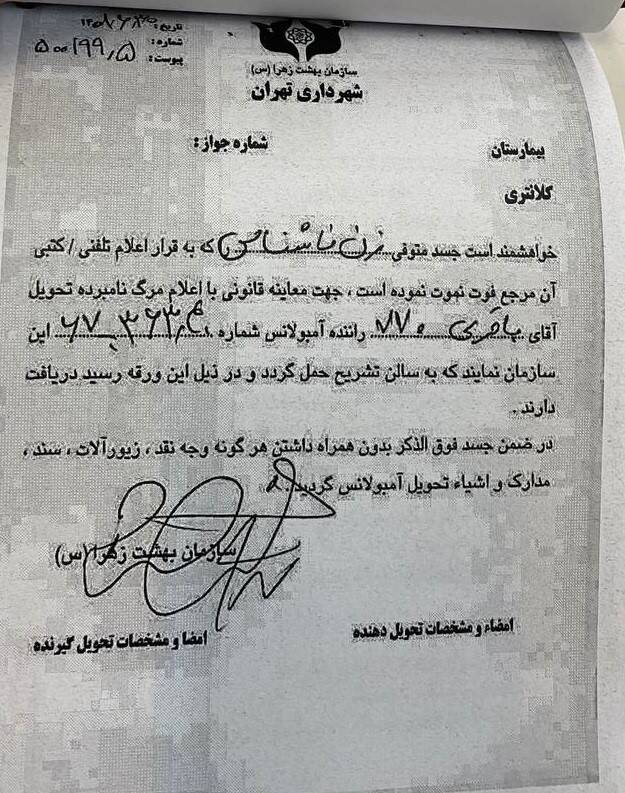 تاریخ:
شماره: ۵۰۰۱۹۹٫۵
پیوست:
سازمان بهشت زهرا (س)
شهرداری تهران
بیمارستان شماره جواز:
کلانتری
خواهشمند است جسد متوفی زن ناشناس را که به قرار اعلام تلفنی / کتبی
آن مرجع فوت نموت نموده است ، جهت معاینه قانونی با اعلام مرگ نامبرده تحویل
آقای باقری ۸۷۰ راننده آمبولانس شماره این
سازمان نمایند که به سالن تشریح حمل گردد و در ذیل این ورقه رسید دریافت
دارند .
در ضمن جسد فوق الذکر بدون همراه داشتن هر گونه وجه نقد ، زیورآلات ، سند ،
مدارک و اشیاء تحویل آمبولانس گردید .
سازمان بهشت زهرا (س)
امضاء و مشخصات تحویل دهنده امضا و مشخصات تحویل گیرنده